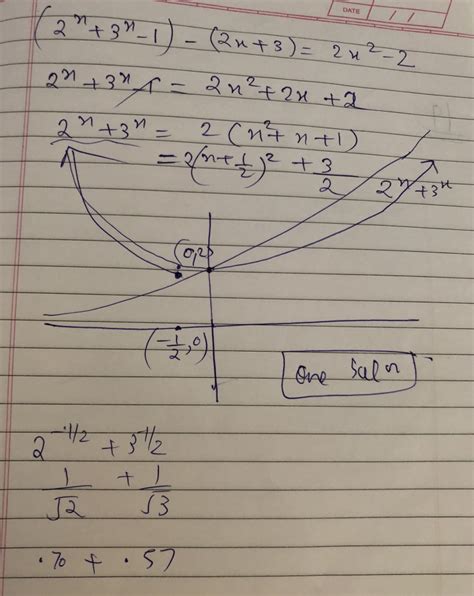 DATE
(2^x + 3^x - 1) - (2x + 3) = 2x² - 2
2^x + 3^x - 1 = 2x² + 2x + 2
2^x + 3^x = 2(x² + x + 1)
= 2(x + 1/2)² + 3/2
2^x + 3^x
(0,2)
(-1/2, 0)
One Soln
2^-1/2 + 3^-1/2
1/√2 + 1/√3
.70 + .57